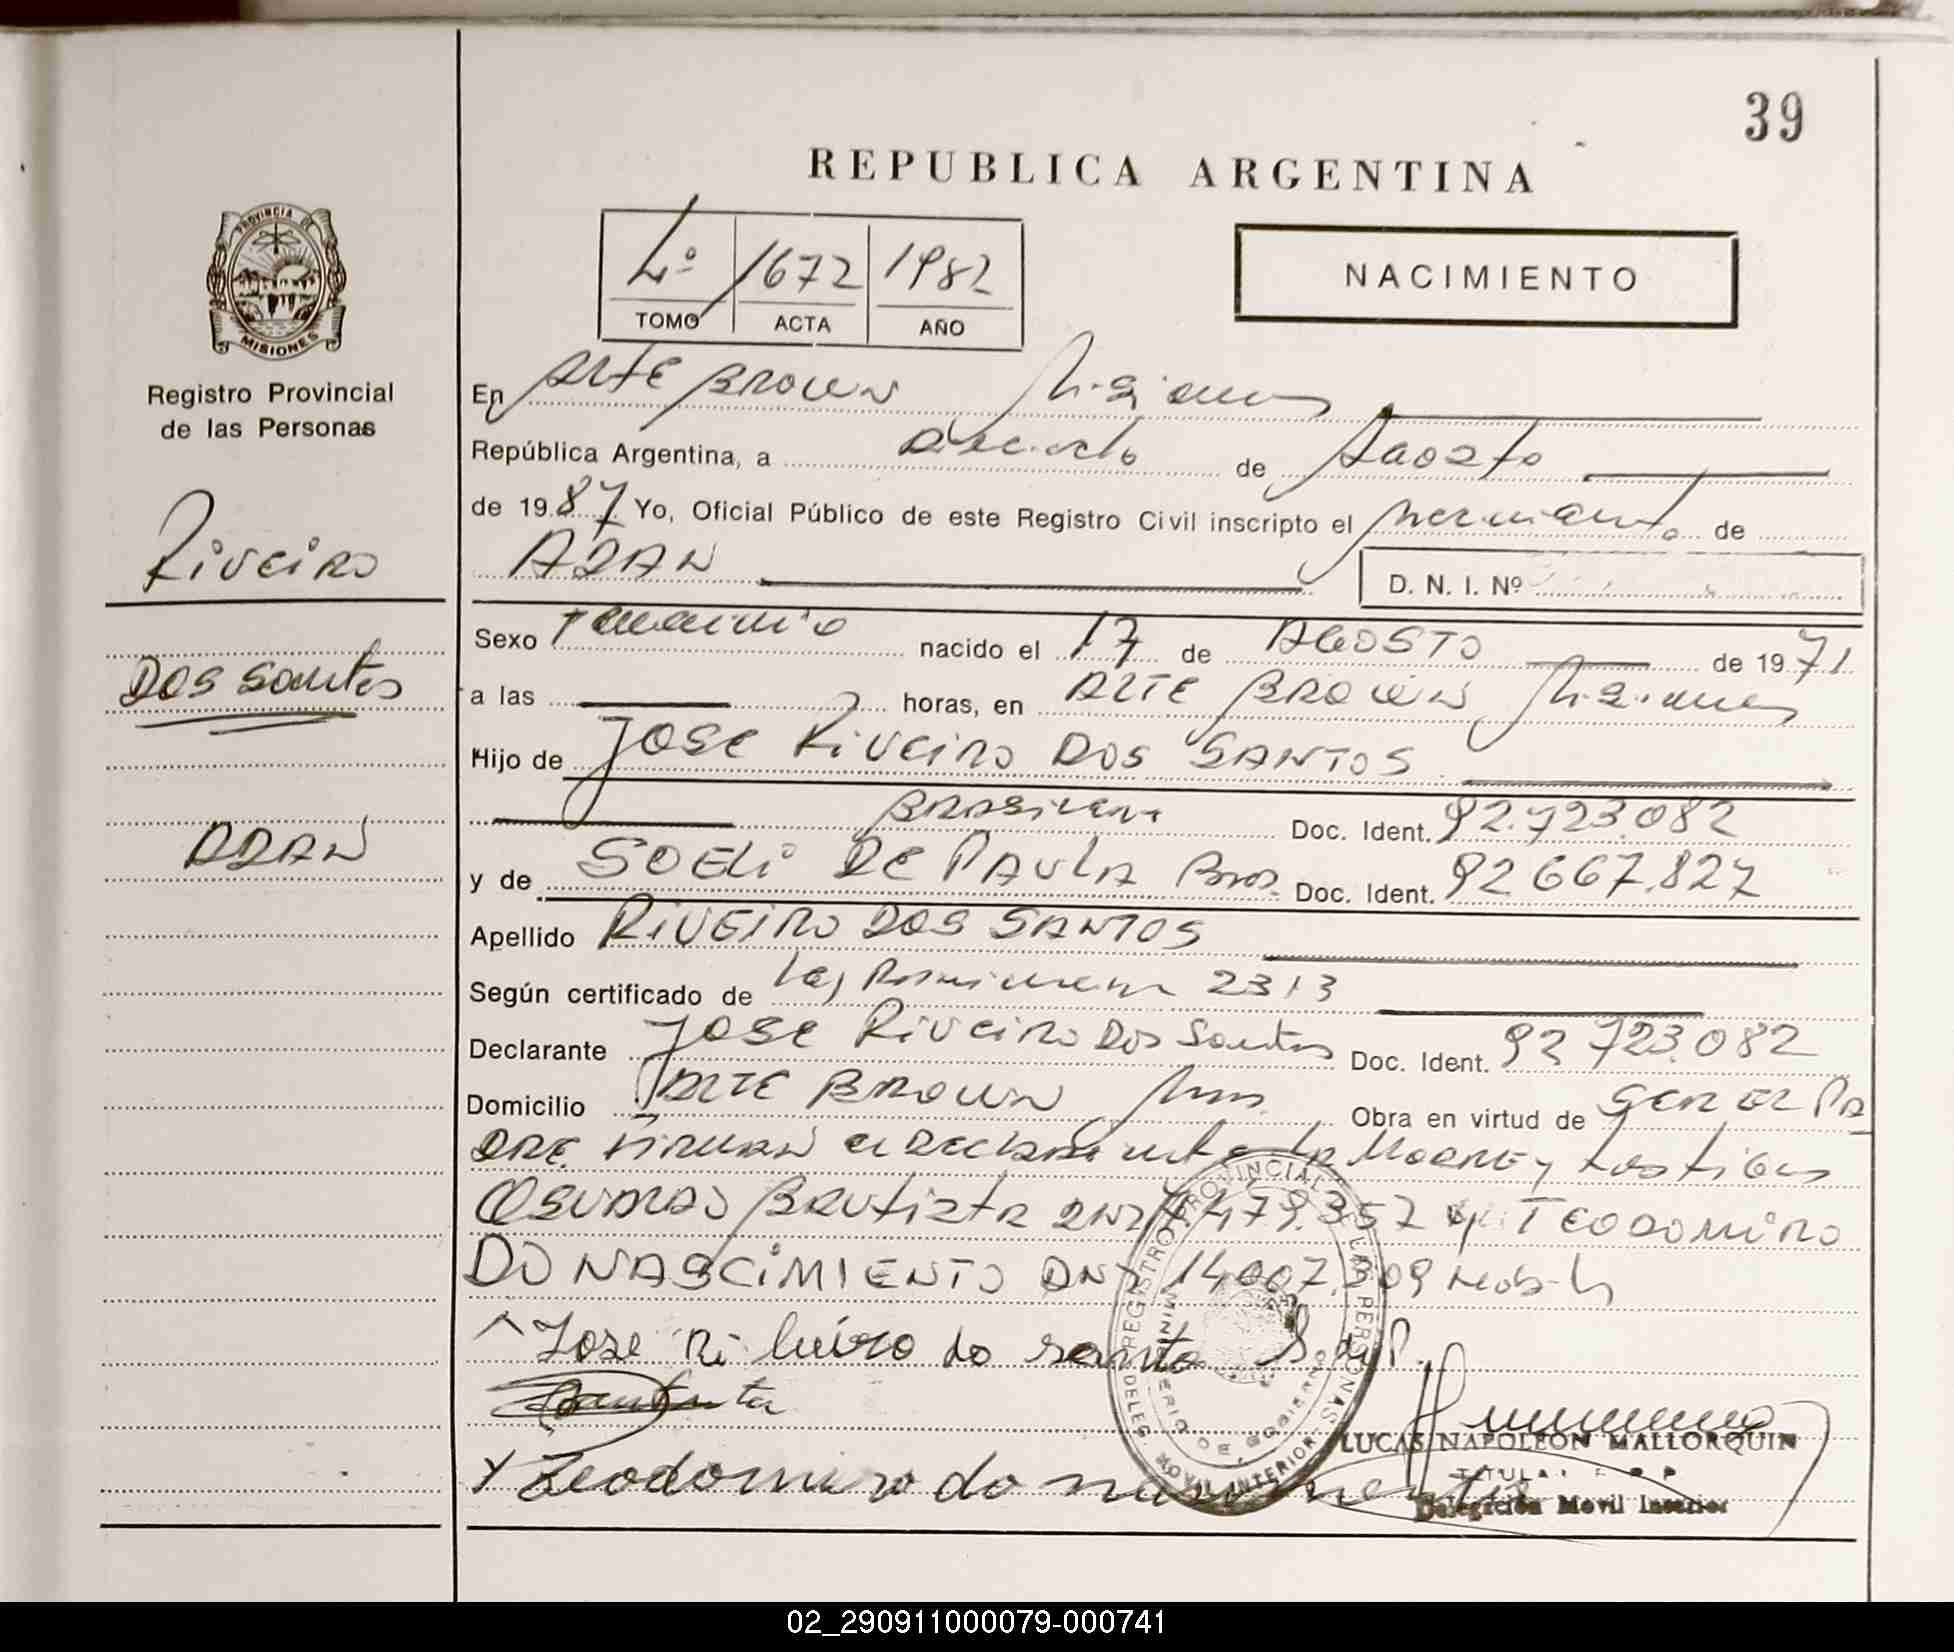 39
REPUBLICA ARGENTINA
PROVINCIA DE
MISIONES
Registro Provincial
de las Personas
4º 1672 1982
TOMO ACTA AÑO
NACIMIENTO
En Alte Brown Misiones
República Argentina, a Dieciocho de Agosto
de 1987 Yo, Oficial Público de este Registro Civil inscripto el nacimiento de
ADAN
D. N. I. Nº
Riveiro
Dos Santos
ADAN
Sexo nacido el 17 de AGOSTO de 1971
a las horas, en ALTE BROWN Misiones
Hijo de JOSE RiVEiRO DOS SANTOS
Brasilera Doc. Ident. 92.723.082
y de SOELi DE PAULA Bras. Doc. Ident. 92 667.827
Apellido RiVEIRO DOS SANTOS
Según certificado de Ley 2313
Declarante JOSE RiVEiRO Dos Santos Doc. Ident. 92 723.082
Domicilio ALTE BROWN Mnes. Obra en virtud de SER EL PA
DRE. FIRMAN el Declarante la Madre y testigos
Bautista 479.357 y TEODOMiRO
DO NASCiMIENTO DNI 14007.309
Jose Ri beiro do santo S. d P.
Bautista
Teodomiro do nascimento
REGISTRO PROVINCIAL DE LAS PERSONAS
MINISTERIO DE GOBIERNO
DELEG. MOVIL INTERIOR
LUCAS NAPOLEON MALLORQUIN
TITULAR
Delegación Movil Interior
02_290911000079-000741